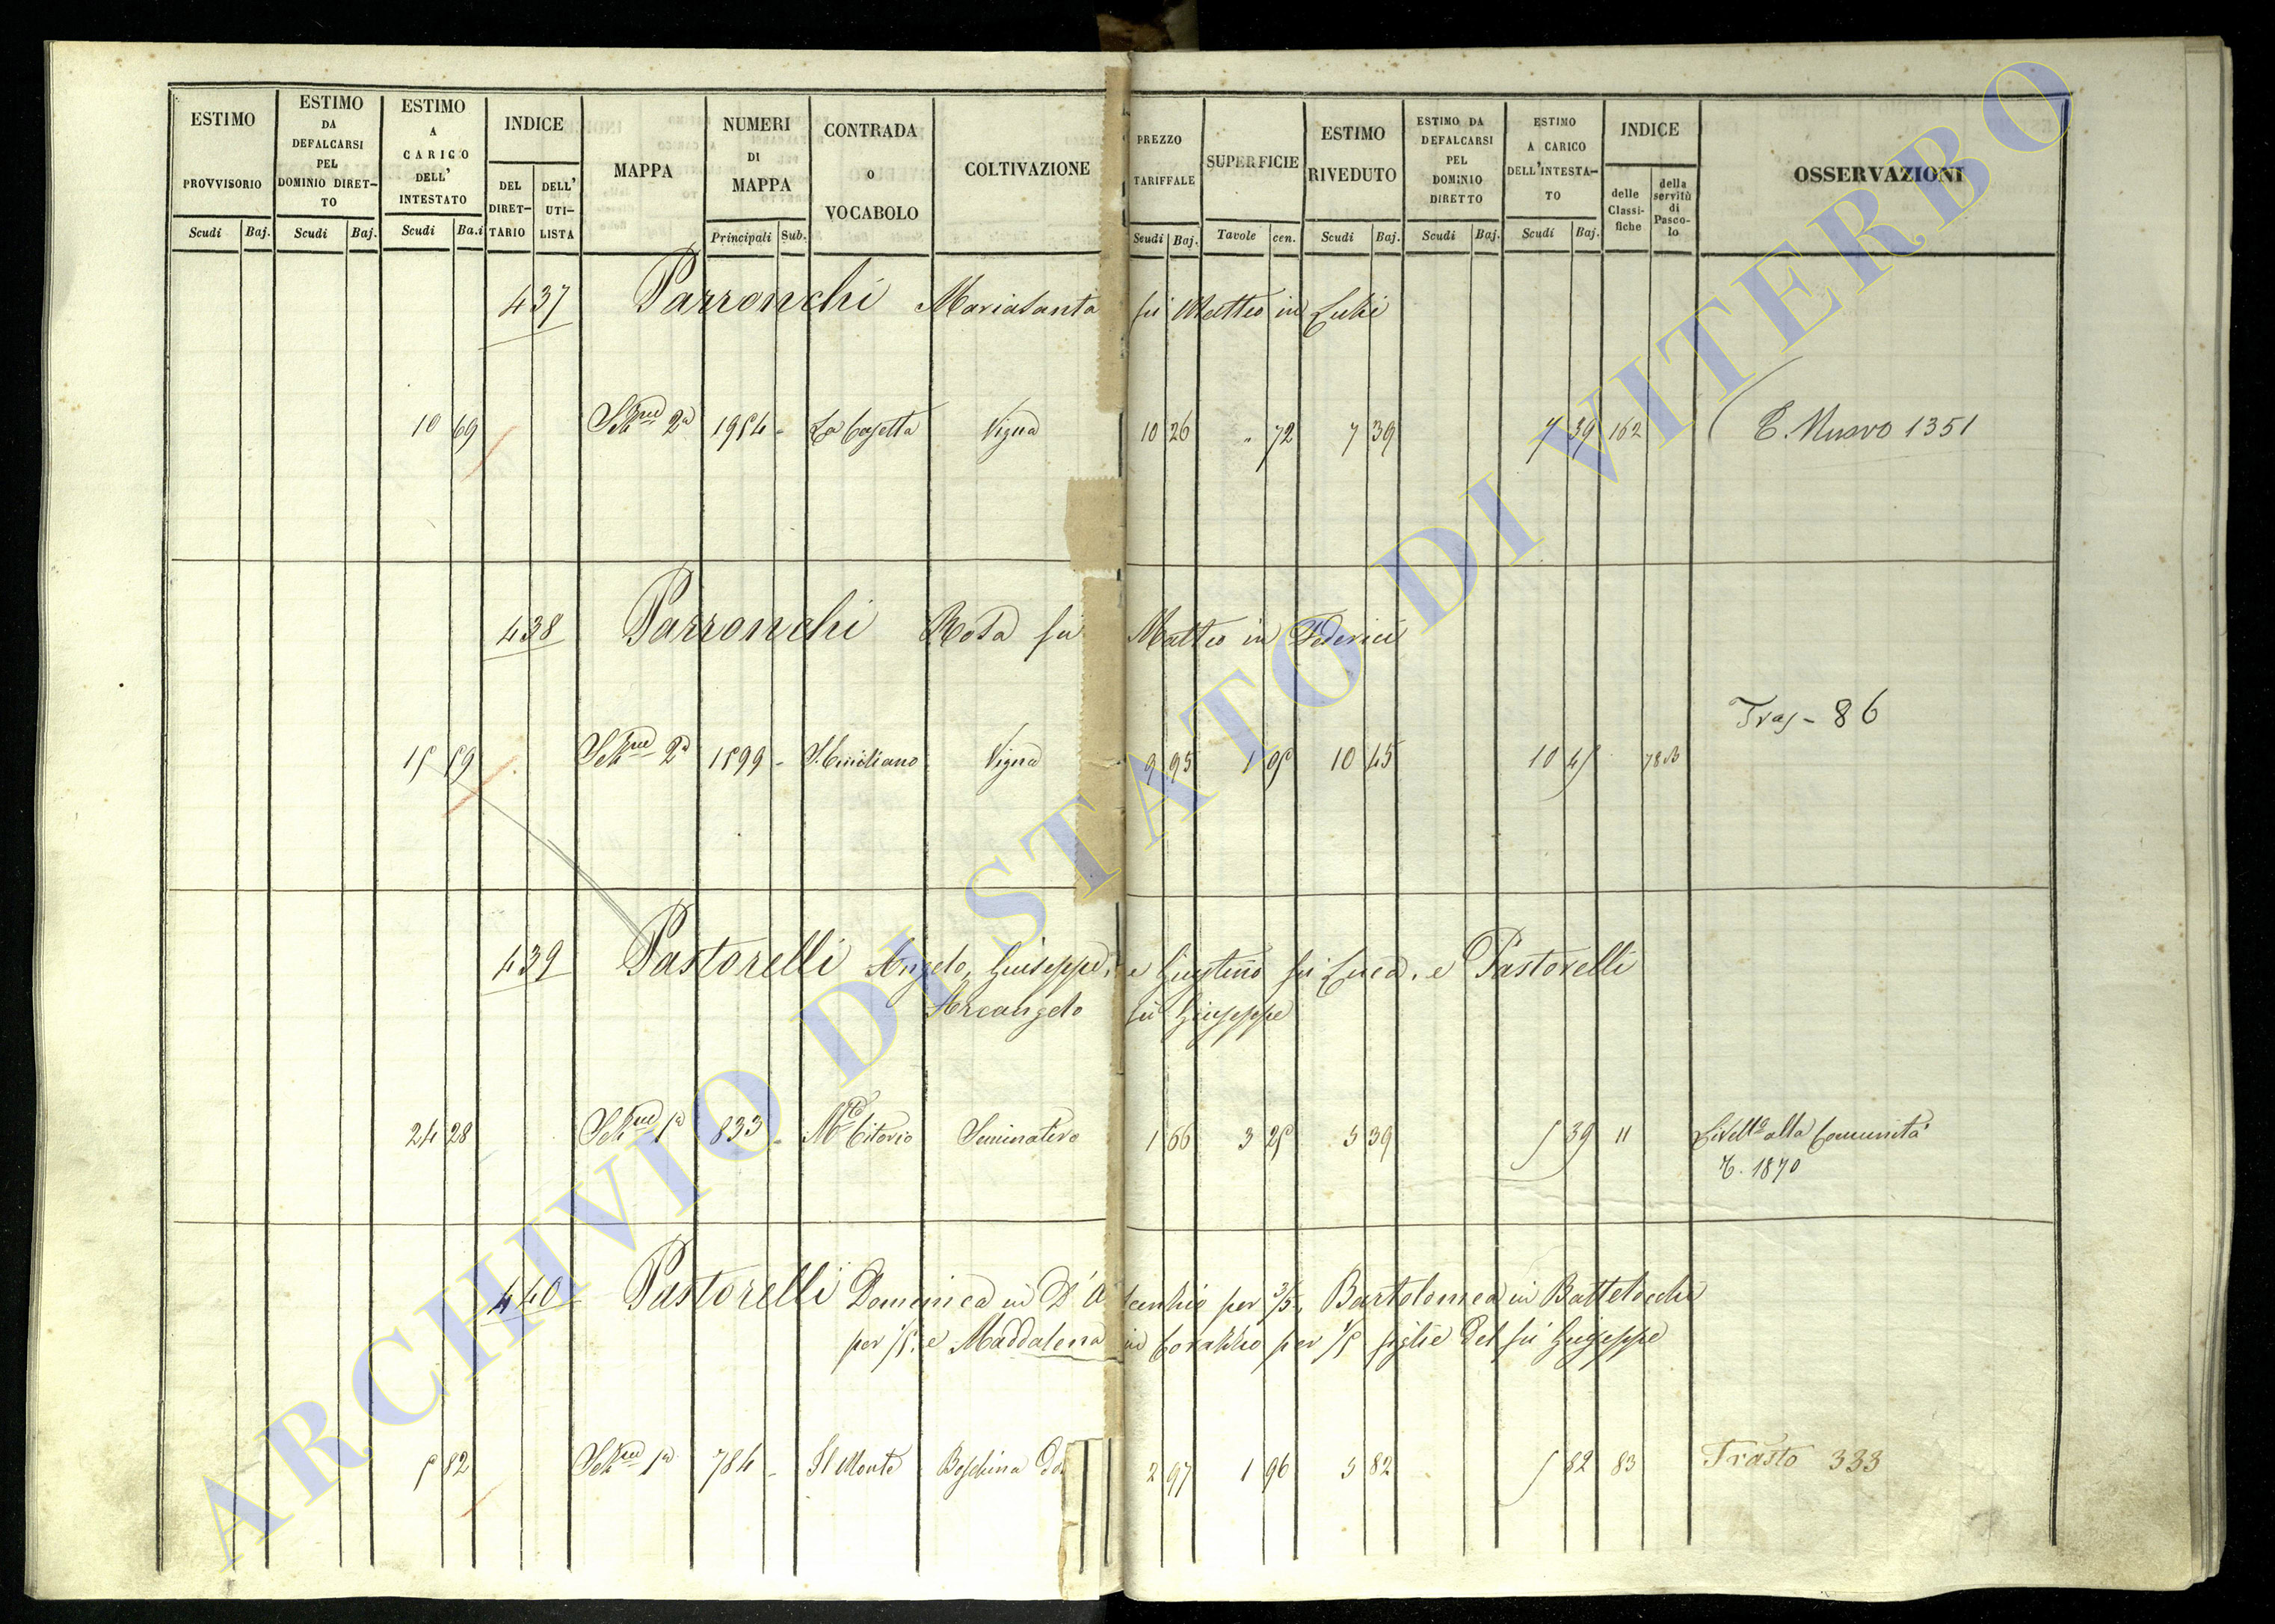 ESTIMO PROVVISORIO
ESTIMO DA DEFALCARSI PEL DOMINIO DIRET-TO
ESTIMO A CARICO DELL' INTESTATO
INDICE
DEL DIRET-TARIO
DELL' UTI-LISTA
MAPPA
NUMERI DI MAPPA
CONTRADA O VOCABOLO
COLTIVAZIONE
PREZZO TARIFFALE
SUPERFICIE
ESTIMO RIVEDUTO
ESTIMO DA DEFALCARSI PEL DOMINIO DIRETTO
ESTIMO A CARICO DELL'INTESTA-TO
INDICE
delle Classi-fiche
della servitù di Pasco-lo
OSSERVAZIONI
Scudi Baj. Scudi Baj. Scudi Ba.i Principali Sub. Scudi Baj. Tavole cen. Scudi Baj. Scudi Baj. Scudi Baj.
437 Parronchi Mariasanta fu Matteo in
10 69 2a 1954 - La Casetta Vigna 10 26 " 72 7 39 7 39 162 C. Nuovo 1351
438 Parronchi Rosa fu Matteo in Federici
Tras - 86
15 59 2a 1599 - Vigna 9 95 1 05 10 45 10 45 78
439 Pastorelli Angelo, Giuseppe, e Giustino fu Luca, e Pastorelli
Arcangelo fu Giuseppe
24 28 1a 833 - Mte Citorio Seminativo 1 66 3 25 5 39 5 39 11 Livello alla Comunità
1870
440 Pastorelli Domenica in per 3/5, Bartolomea in Battelocchi
per 1/5, e Maddalena in per 1/5 figlie del fu Giuseppe
5 82 1a 784 - Il Monte Boschina 2 97 1 96 5 82 5 82 83 Trasto 333
ARCHIVIO DI STATO DI VITERBO